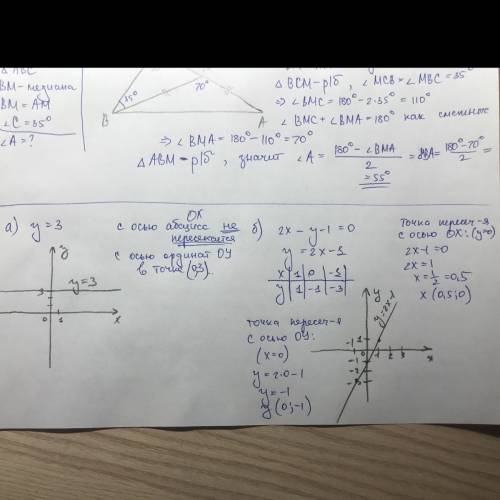 △ABC
BM-медиана
BM = AM
∠C = 35°
∠A = ?
35°
70°
B
A
△BCM-р/б, ∠MCB = ∠MBC = 35°
⇒ ∠BMC = 180° - 2·35° = 110°
∠BMC + ∠BMA = 180° как смежные
⇒ ∠BMA = 180° - 110° = 70°
△ABM - р/б, значит ∠A = (180° - ∠BMA)/2 = (180° - 70°)/2 =
= 55°
а) y = 3
OX
с осью абсцисс не
пересекается
с осью ординат OY
в точке (0;3)
y
y = 3
3
0 1
x
б) 2x - y - 1 = 0
y = 2x - 1
x | 1 | 0 | -1
y | 1 | -1 | -3
точка пересеч-я
с осью OX: (y=0)
2x - 1 = 0
2x = 1
x = 1/2 = 0,5
x (0,5; 0)
точка пересеч-я
с осью OY:
(x=0)
y = 2·0 - 1
y = -1
y (0; -1)
y
y = 2x-1
-1 1
1 2 3
-1
-2
-3
x